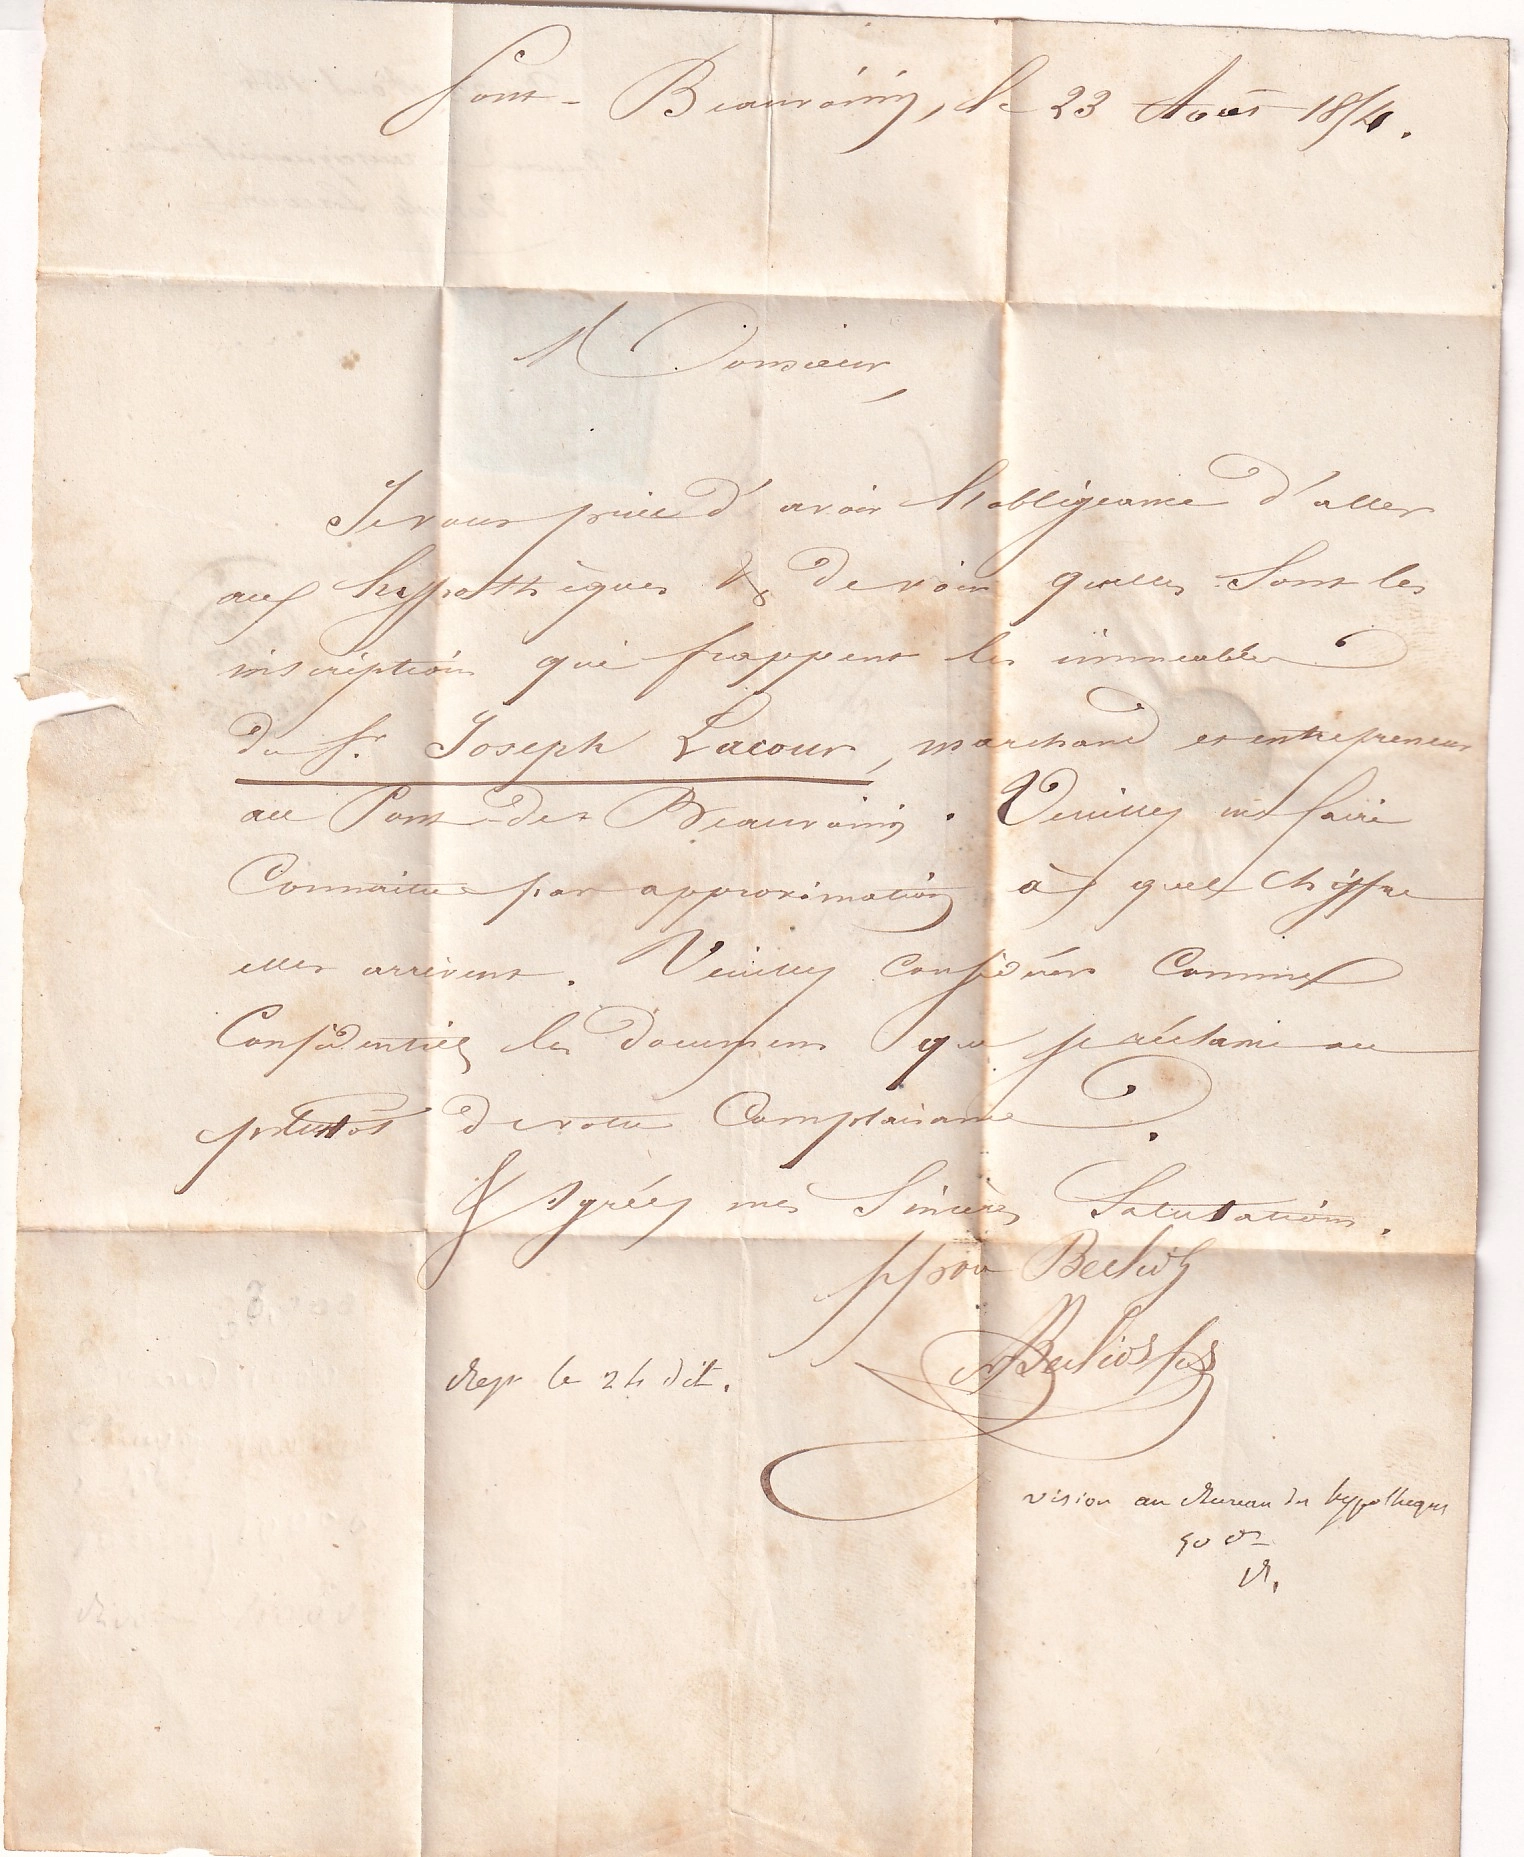 Pont-Beauvoisin, le 23 Août 1854.
Monsieur,
Je vous prie d'avoir l'obligeance d'aller
aux hippothèques & de voir quelles sont les
inscriptions qui frappent les immeubles
du Sr. Joseph Lacour, marchand et entrepreneur
au Pont-de-Beauvoisin. Veuillez me faire
Connaitre par approximation à quel chiffre
elles arrivent. Veuillez considérer Comme
Confidentiel les documens que je réclame au
plutôt de votre Complaisance.
& Agréez mes Sincères Salutations.
Berlioz
Berlioz fils
Rep le 24 dit.
vision au Bureau des hypothèques
50 
R.